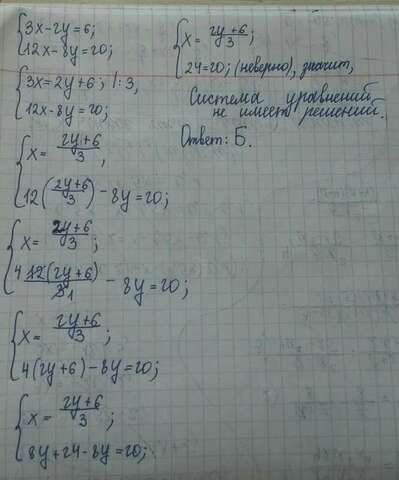 {3x-2y=6;
12x-8y=20;
{3x=2y+6; |:3,
12x-8y=20;
{x= 2y+6/3,
12(2y+6/3)-8y=20;
{x= 2y+6/3;
4 12(2y+6)/3 1 - 8y=20;
{x= 2y+6/3;
4(2y+6)-8y=20;
{x= 2y+6/3;
8y+24-8y=20;
{x= 2y+6/3;
24=20; (неверно), значит,
Система уравнений
не имеет решений.
Ответ: Б.